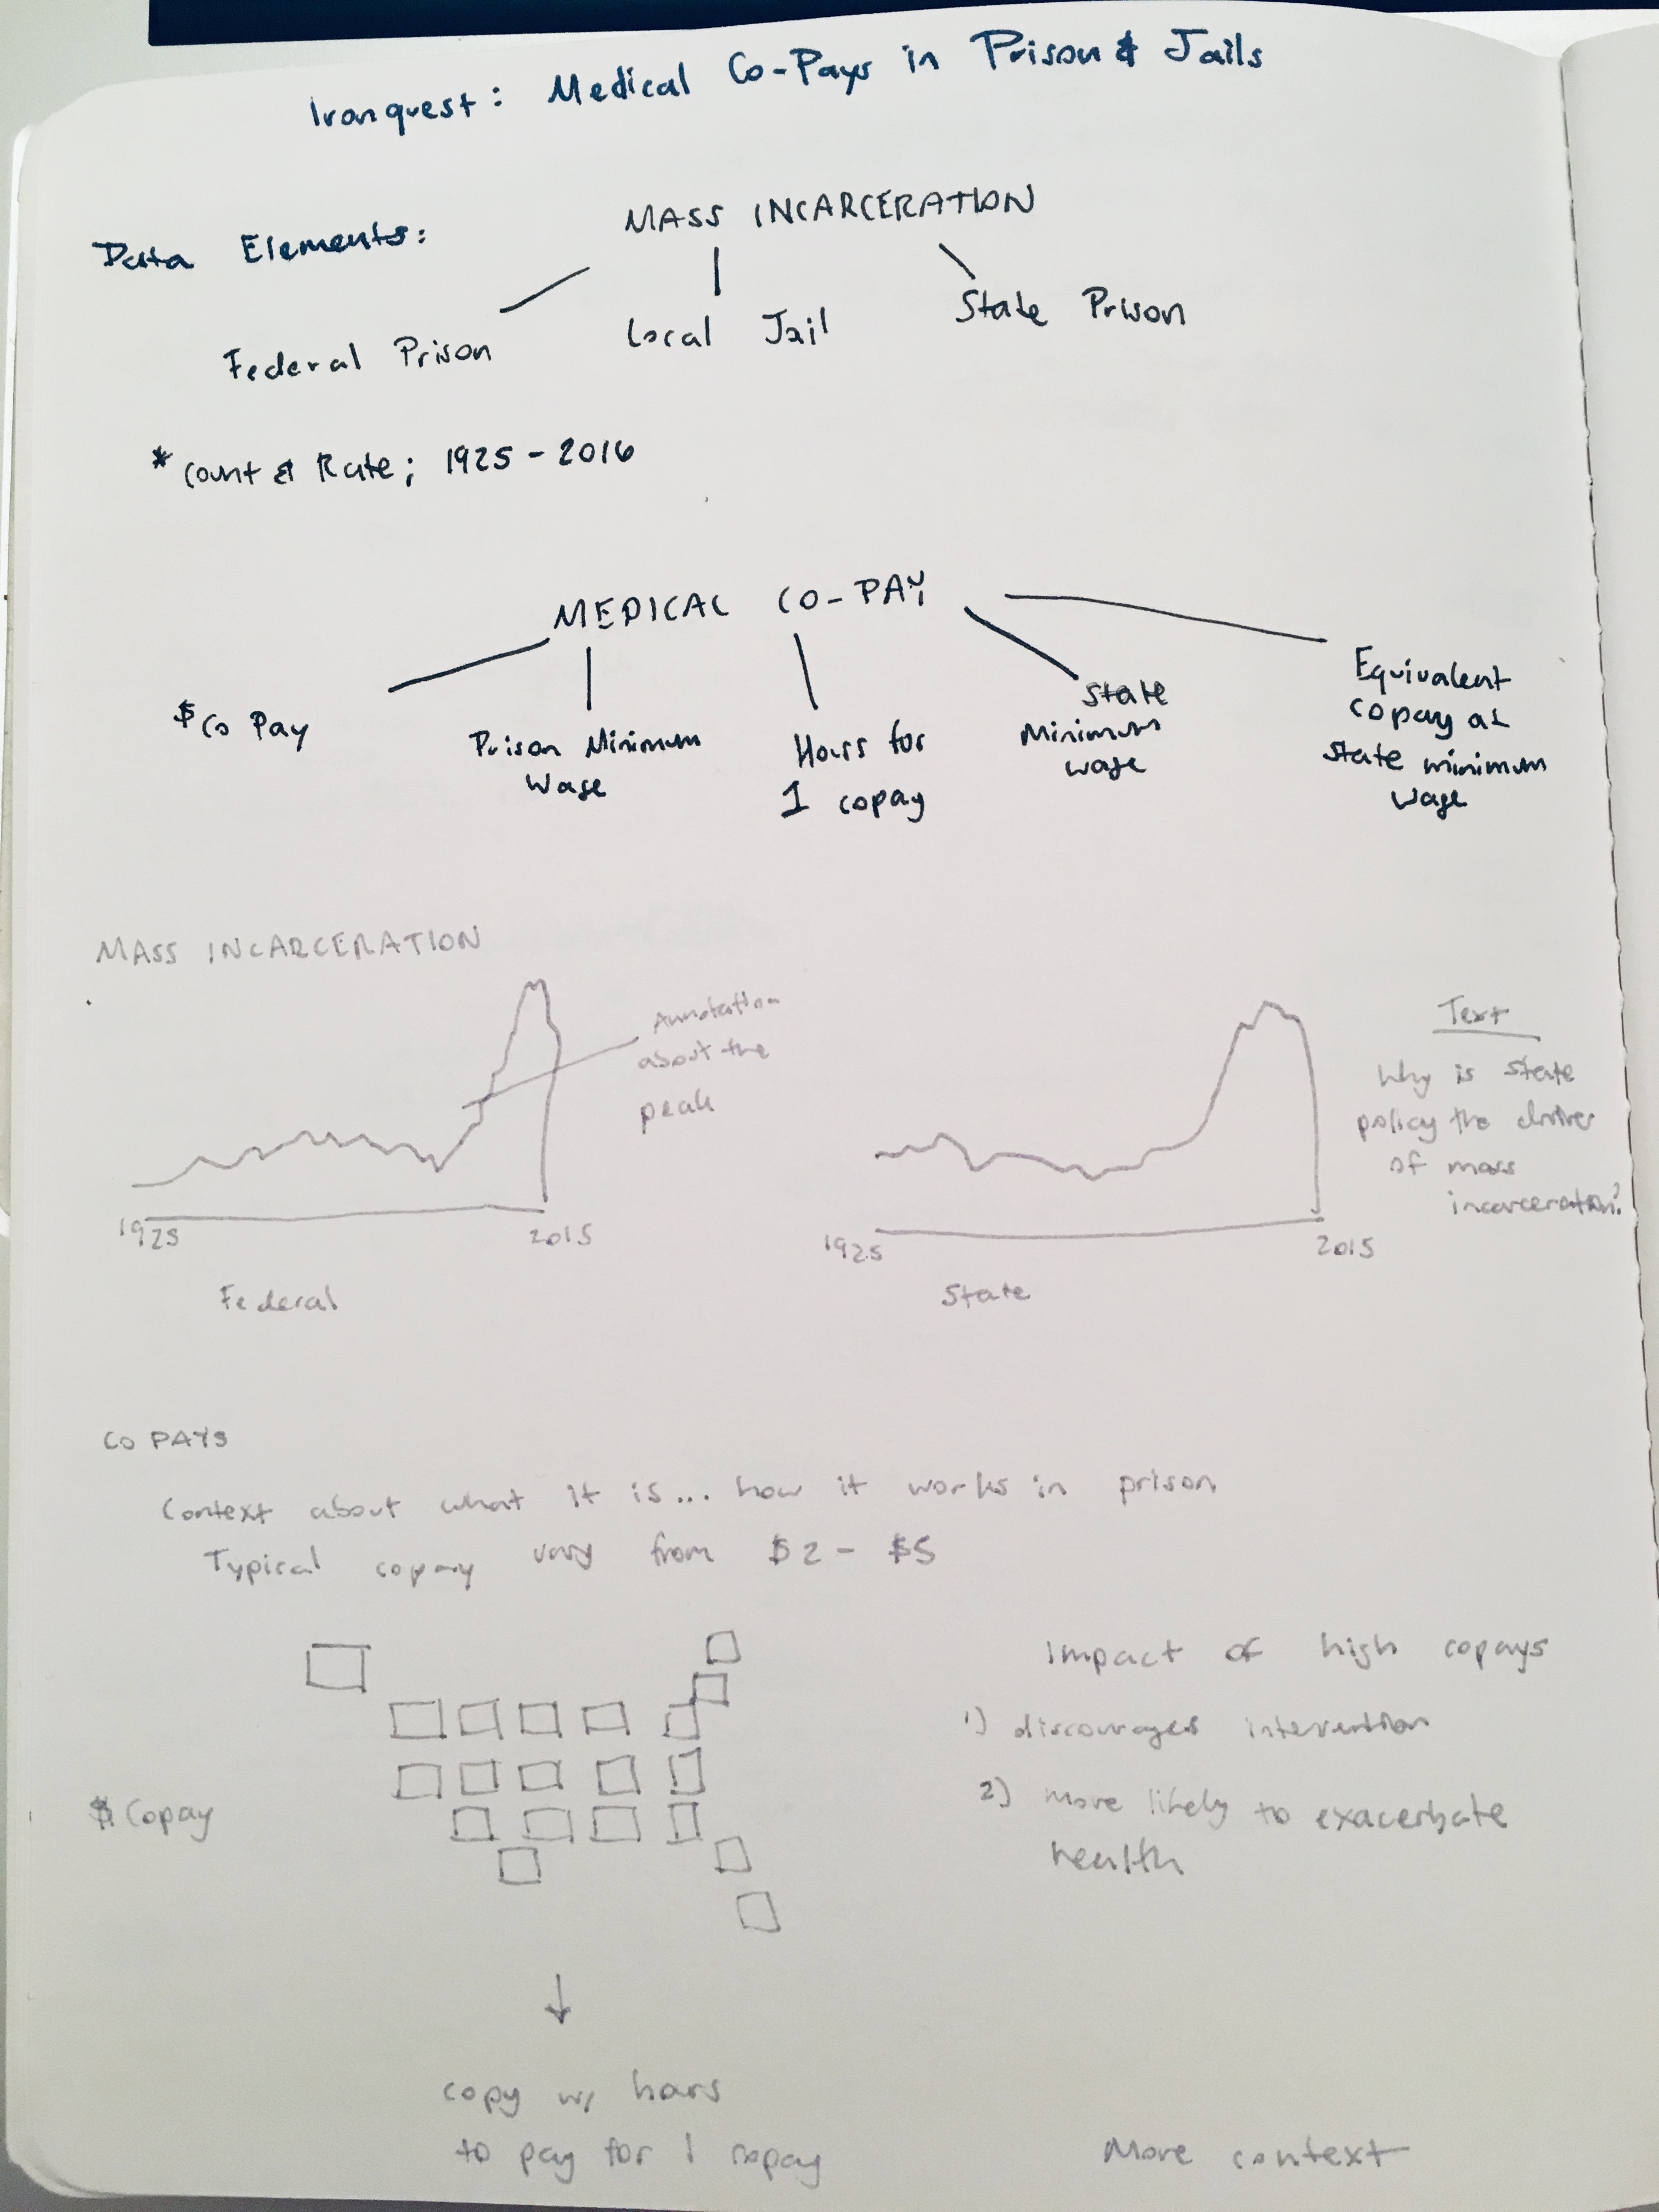 Ironquest: Medical Co-Pays in Prison & Jails
Data Elements:
MASS INCARCERATION
Federal Prison
Local Jail
State Prison
* Count & Rate; 1925 - 2016
MEDICAL CO-PAY
$ Co Pay
Prison Minimum
Wage
Hours for
1 copay
State
Minimum
wage
Equivalent
copay at
state minimum
wage
MASS INCARCERATION
Annotation
about the
peak
1925
2015
Federal
1925
2015
State
Text
Why is state
policy the driver
of mass
incarceration?
CO PAYS
Context about what it is... how it works in prison
Typical copay vary from $2 - $5
$ Copay
Impact of high copays
1) discourages intervention
2) more likely to exacerbate
health
copy w/ hours
to pay for 1 copay
More context